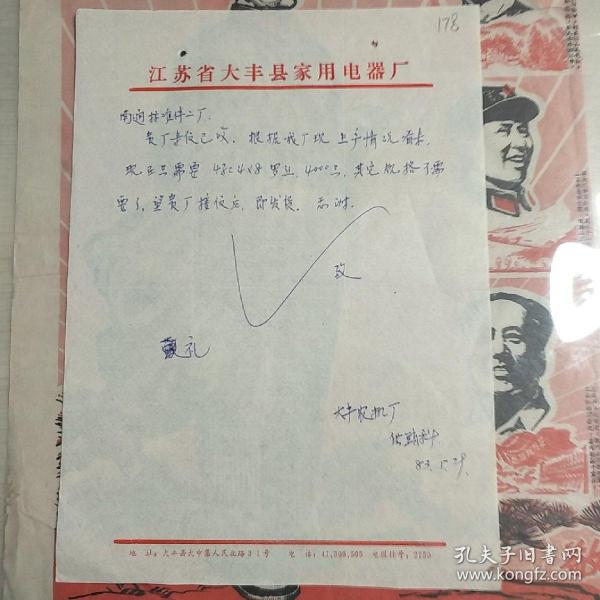 178
江苏省大丰县家用电器厂
南通标准件二厂:
贵厂来信已收,根据我厂现生产情况看来,
现正只需要 4×8 4000只,其它规格不需
要了,望贵厂接信后,即发货。
致
敬礼
大丰农机厂
供销科
83.
地 址:大丰县大中集人民北路31号 电 话:
孔夫子旧书网
www.kongfz.com